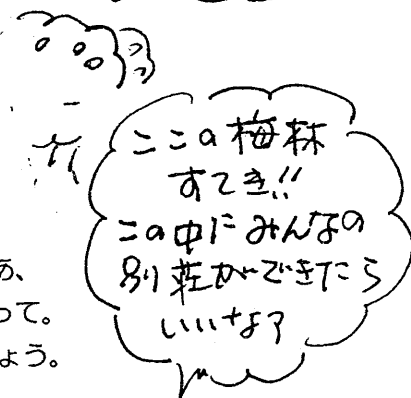 ここの梅林
すてき!!
この中にみんなの
別荘ができたら
いいなァ
あ、
って。
ょう。